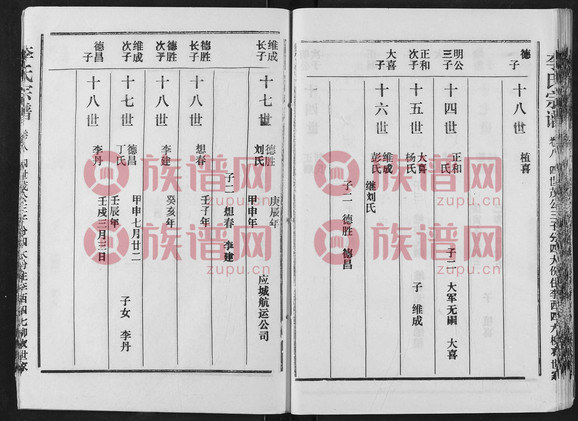 德
子
十八世
植喜
明公
三子
十四世
正和
氏
子二 大军无嗣 大喜
正和
次子
十五世
大喜
杨氏
子 维成
大喜
子
十六世
维成
彭氏
继刘氏
子二 德胜 德昌
维成
长子
十七世
德胜
刘氏
庚辰年
甲申年
应城航运公司
子二 想春 李建
德胜
长子
十八世
想春
壬子年
德胜
次子
十八世
李建
癸亥年
维成
次子
十七世
德昌
丁氏
甲申七月廿二
壬辰年
子女 李丹
德昌
子
十八世
李丹
壬戌二月三日
李氏宗谱 卷八
李氏宗谱 卷八
族谱网
zupu.cn
族谱网
zupu.cn
族谱网
zupu.cn
族谱网
zupu.cn